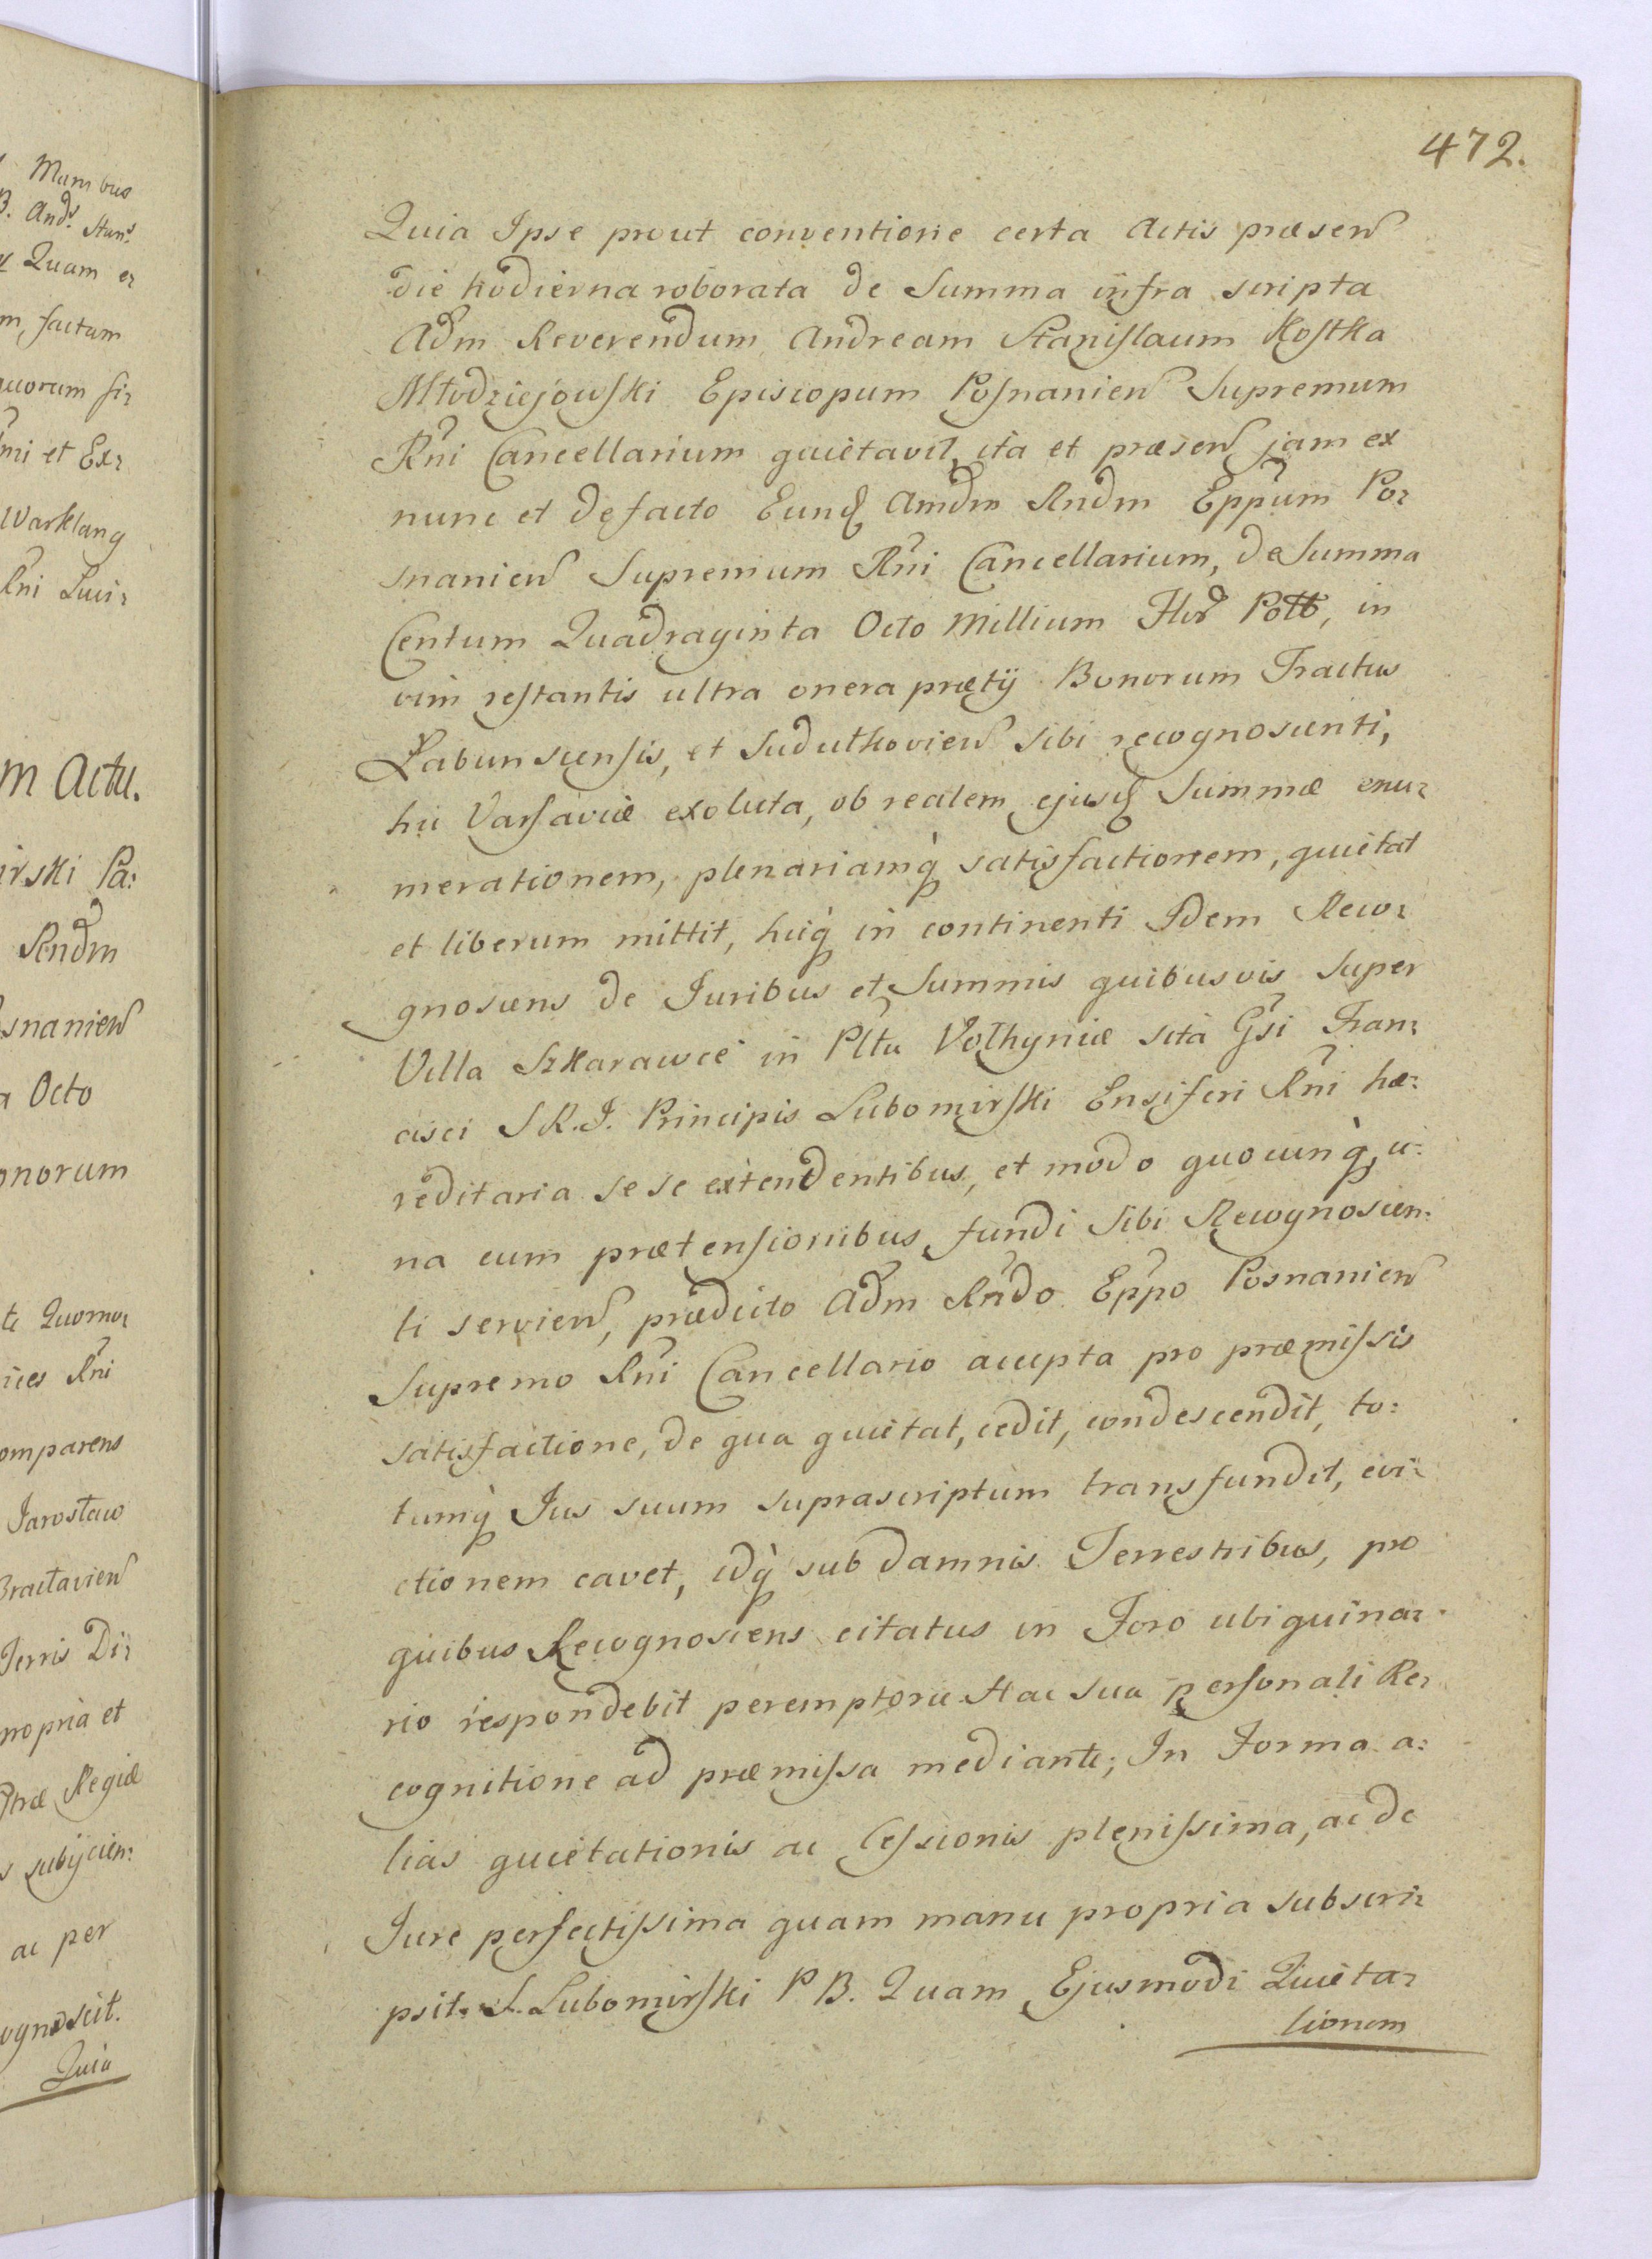 Manibus
B. Andr. Stan.
Quam e
m, factum
quorum fi
mi et Ex
Warklang
Rni Luci
m Actu.
irski Pa:
Rndm
snanien
a Octo
onorum
te Quomo
ices Rni
omparens
Jarosław
Bractavien
Terris Di
propria et
Regiæ
s subijcien:
ac per
ognoscit.
Quia
472.
Quia Ipse prout conventione certa Actis præsen
die hodierna roborata de Summa infra scripta
Adm Reverendum Andream Stanislaum Kostka
Młodziejowski Episcopum Posnanien Supremum
Rni Cancellarium quietavit, ita et præsen jam ex
nunc et de facto Eund Amdm Rndm Eppum Po:
snanien Supremum Rni Cancellarium, de Summa
Centum Quadraginta Octo Millium Flor Poll, in
vim restantis ultra onera prætij Bonorum Tractus
Łabunscensis, et Sudułkovien sibi recognoscenti,
hic Varsaviæ exoluta, ob realem ejusd Summæ enu:
merationem, plenariamq satisfactionem, quietat
et liberum mittit, hicq in continenti Idem Reco:
gnoscens de Juribus et Summis quibusvis super
Villa Szkarawce in Pltu Volhyniæ sita Gsi Fran:
cisci S R. I. Principis Lubomirski Ensiferi Rni hæ:
reditaria sese extendentibus, et modo quocunq, u:
na cum prætensionibus fundi sibi Recognoscen:
ti servien, prædicto Adm Rndo Eppo Posnanien
Supremo Rni Cancellario accepta pro præmissis
satisfactione, de qua quietat, cedit, condescendit, to:
tumq Jus suum suprascriptum transfundit, evi:
ctionem cavet, idq sub damnis Terrestribus, pro
quibus Recognoscens citatus in Foro ubiquina:
rio respondebit peremptorie Hac sua personali Re:
cognitione ad præmissa mediante; In Forma a:
lias quietationis ac Cessionis plenissima, ac de
Jure perfectissima quam manu propria subscri:
psit. S. Lubomirski P B. Quam Ejusmodi Quieta:
tionem